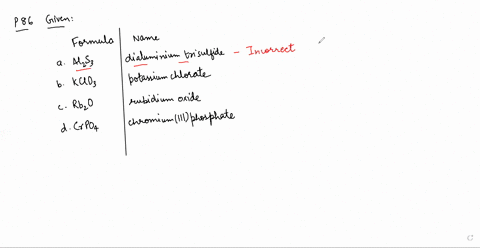 P86 Given:
Formula Name
a. Al2S3 dialuminium trisulfide - Incorrect
b. KClO3 potassium chlorate
c. Rb2O rubidium oxide
d. CrPO4 chromium(III) phosphate